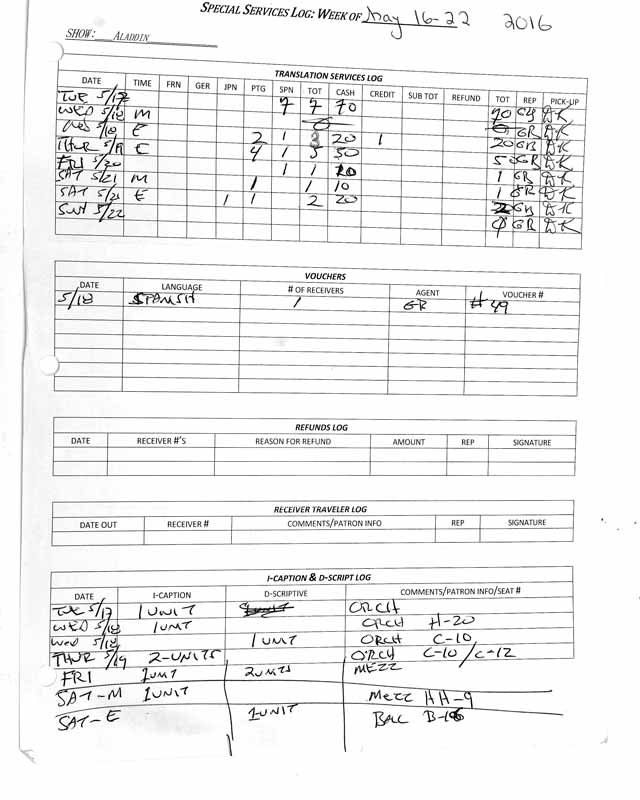 SPECIAL SERVICES LOG: WEEK OF May 16-22 2016
SHOW: ALADDIN
TRANSLATION SERVICES LOG
DATE TIME FRN GER JPN PTG SPN TOT CASH CREDIT SUB TOT REFUND TOT REP PICK-UP
TUE 5/17 7 7 70 70 DK
WED 5/18 M DK
WED 5/18 E 2 1 3 20 1 20 GR DK
THUR 5/19 E 4 1 5 50 50 GR DK
FRI 5/20 1 1 10 1 GR DK
SAT 5/21 M 1 1 10 1 GR DK
SAT 5/21 E 1 1 2 20 2 GR DK
SUN 5/22 GR DK
VOUCHERS
DATE LANGUAGE # OF RECEIVERS AGENT VOUCHER #
5/18 SPANISH 1 GR #49
REFUNDS LOG
DATE RECEIVER #'S REASON FOR REFUND AMOUNT REP SIGNATURE
RECEIVER TRAVELER LOG
DATE OUT RECEIVER # COMMENTS/PATRON INFO REP SIGNATURE
I-CAPTION & D-SCRIPT LOG
DATE I-CAPTION D-SCRIPTIVE COMMENTS/PATRON INFO/SEAT #
TUE 5/17 1 UNIT ORCH
WED 5/18 1 UNIT ORCH H-20
WED 5/18 1 UNIT ORCH C-10
THUR 5/19 2-UNITS ORCH C-10/C-12
FRI 1 UNIT 2 UNITS MEZZ
SAT-M 1 UNIT MEZZ HH-9
SAT-E 1 UNIT BALC